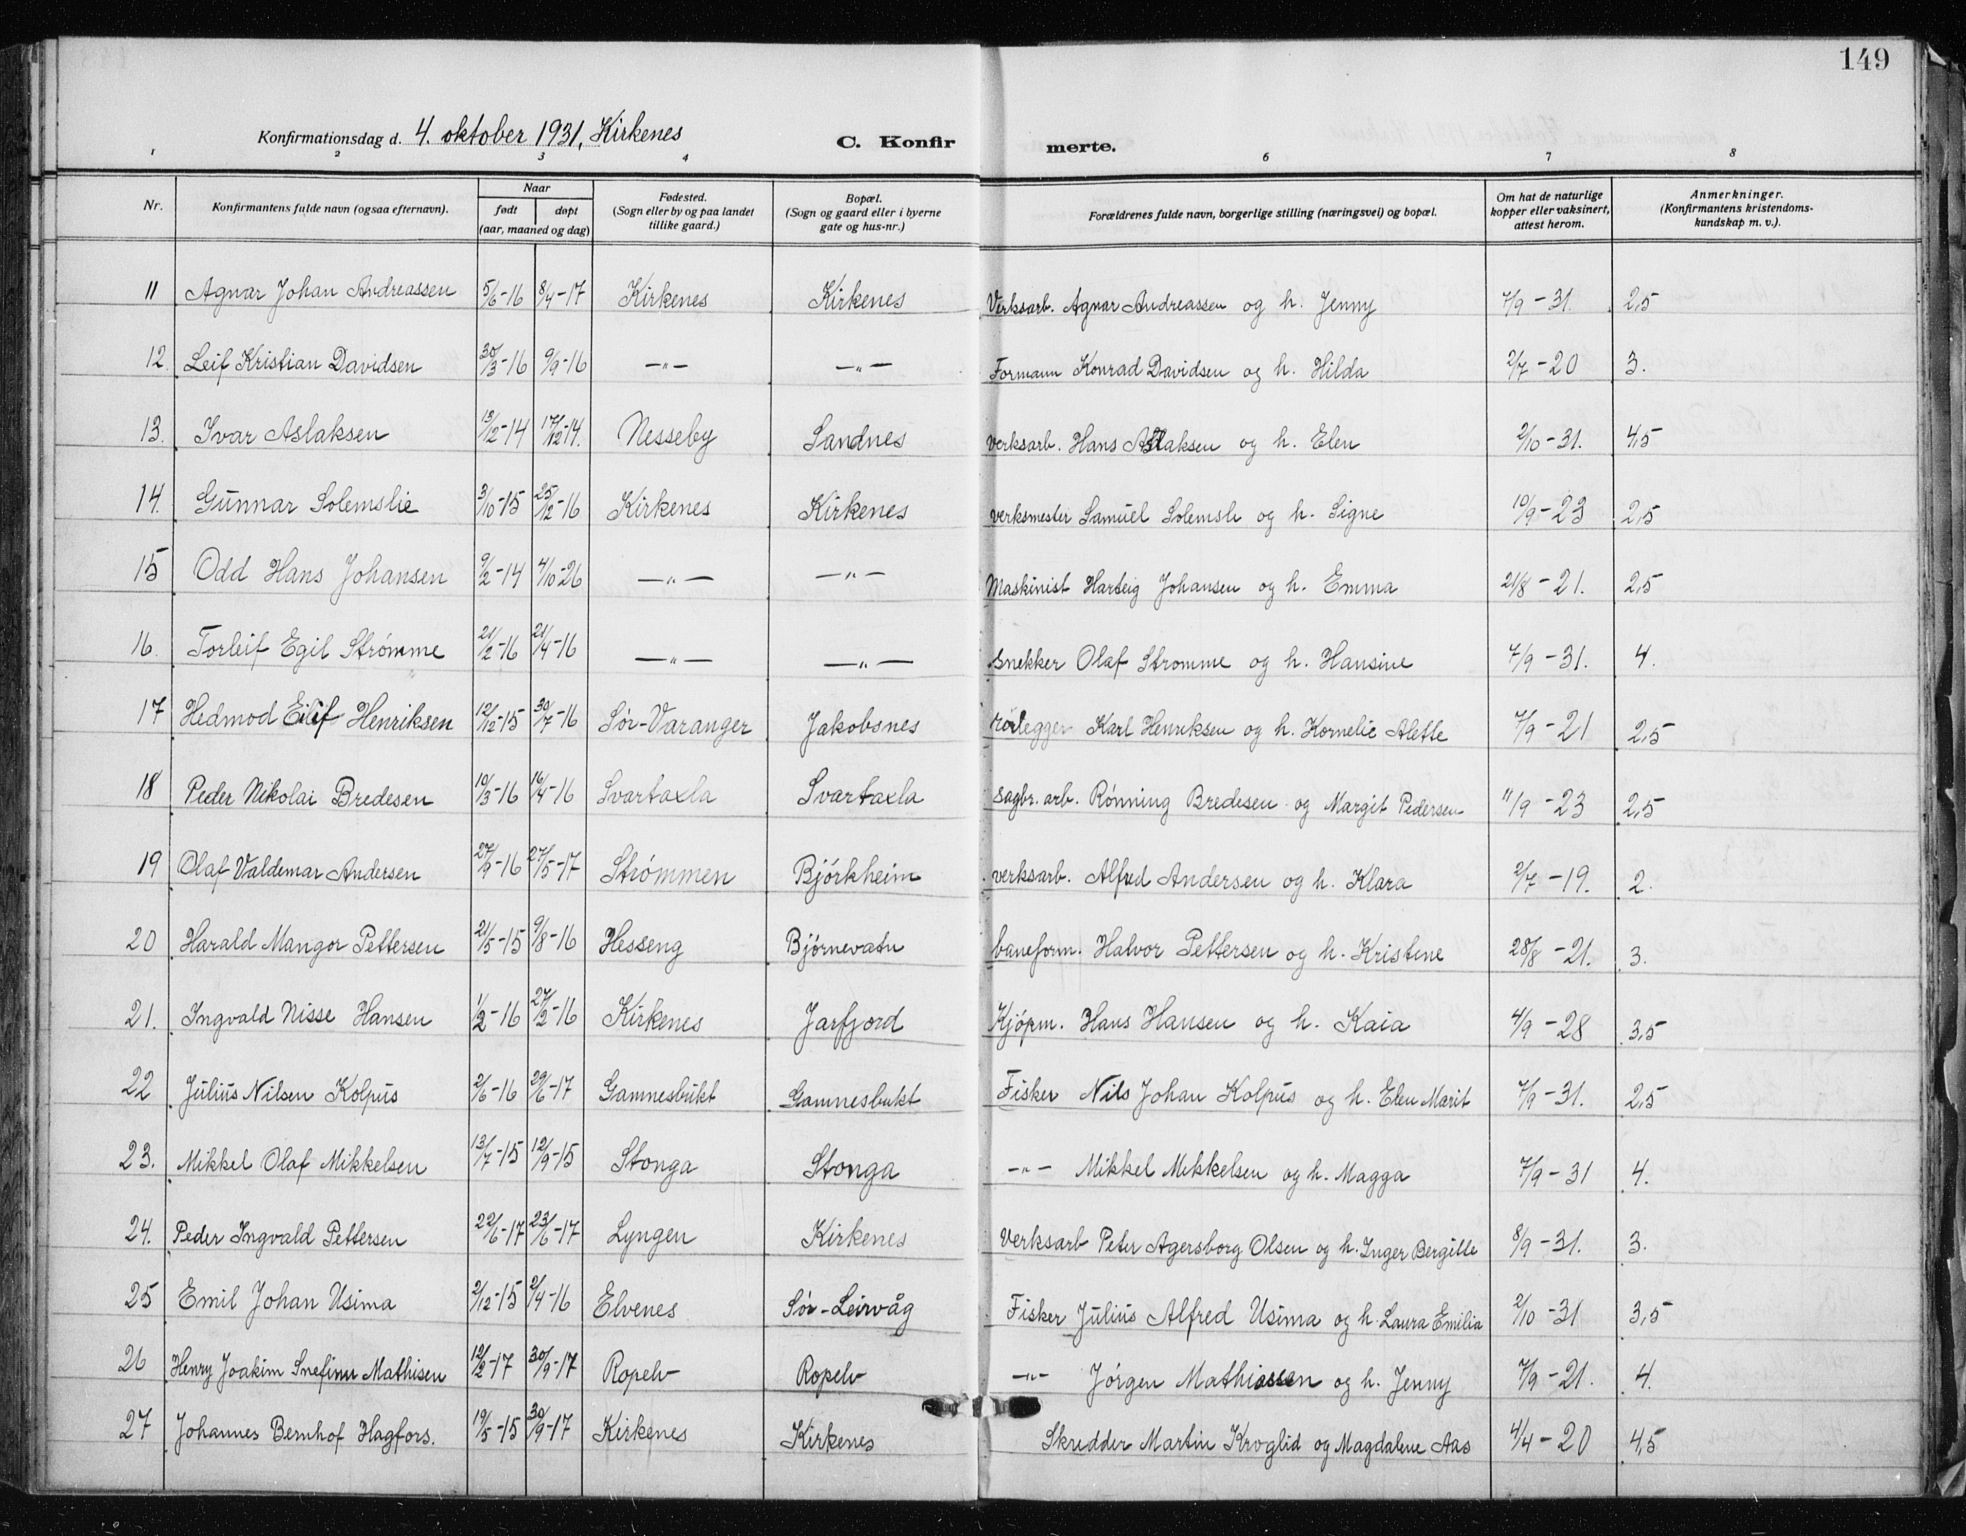 149
Konfirmationsdag d. 4. oktober 1931, Kirkenes
C. Konfir merte.
1 2 3 4 6 7 8
Nr. Konfirmantens fulde navn (ogsaa efternavn). Naar født døpt (aar, maaned og dag) Fødested. (Sogn eller by og paa landet tillike gaard.) Bopæl. (Sogn og gaard eller i byerne gate og hus-nr.) Forældrenes fulde navn, borgerlige stilling (næringsvei) og bopæl. Om hat de naturlige kopper eller vaksinert, attest herom. Anmerkninger. (Konfirmantens kristendoms- kundskap m. v.).
11 Agnar Johan Andreassen 5/6-16 8/4-17 Kirkenes Kirkenes Verksarb. Agnar Andreassen og h. Jenny 7/9-31. 2,5
12. Leif Kristian Davidsen 30/3-16 9/9-16 —"— —"— Formann Konrad Davidsen og h. Hilda 2/7-20 3.
13. Ivar Aslaksen 13/12-14 17/12-14. Nesseby Sandnes verksarb. Hans Aslaksen og h. Elen 2/10-31. 4,5
14. Gunnar Solemslie 3/10-15 25/12-16 Kirkenes Kirkenes verksmester Samuel Solemsli og h. Signe 10/9-23 2,5
15 Odd Hans Johansen 9/2-14 4/10-26 —"— —"— Maskinist Harteig Johansen og h. Emma 21/8-21. 2,5
16. Torleif Egil Strømme 21/2-16 21/4-16 —"— —"— Snekker Olaf Stromme og h. Hansine 7/9-31. 4.
17 Hedmod Eilif Henriksen 12/12-15 30/7-16 Sør-Varanger Jakobsnes rørlegger Karl Henriksen og h. Kornelie Alette 7/9-21 2,5
18 Peder Nikolai Bredesen 10/3-16 16/4-16 Svartaxla Svartaxla Sagbr. arb. Rønning Bredesen og Margit Pedersen 11/9-23 2,5
19 Olaf Valdemar Andersen 27/9-16 27/5-17 Strømmen Bjørkheim verksarb. Alfred Andersen og h. Klara 2/7-19. 2.
20 Harald Mangor Pettersen 21/5-15 9/8-16 Hesseng Bjørnevatn baneform. Halvor Pettersen og h. Kristine 28/8-21. 3.
21. Ingvald Nisse Hansen 1/2-16 27/2-16 Kirkenes Jarfjord Kjøpm. Hans Hansen og h. Kaia 4/9-28 3,5
22 Julius Nilsen Kolpus 2/6-16 29/6-17 Gamnesbukt Gamnesbukt Fisker Nils Johan Kolpus og h. Elen Marit 7/9-31. 2,5
23. Mikkel Olaf Mikkelsen 13/7-15 12/9-15 Stonga Stonga —"— Mikkel Mikkelsen og h. Magga 7/9-31 4.
24. Peder Ingvald Pettersen 22/6-17 23/6-17 Lyngen Kirkenes Verksarb Peter Agersborg Olsen og h. Inger Bergitte 8/9-31. 3.
25 Emil Johan Usima 2/12-15 2/4-16 Elvenes Sør-Leirvåg Fisker Julius Alfred Usima og h. Laura Emilia 2/10-31 3,5
26 Henry Joakim Snefinn Mathisen 12/2-17 30/9-17 Ropelv Ropelv —"— Jørgen Mathiassen og h. Jenny 7/9-21. 4.
27 Johannes Bernhof Hagfors. 19/5-15 30/9-17 Kirkenes Kirkenes Skredder Martin Kroglid og Magdalene Aas 4/4-20 4,5